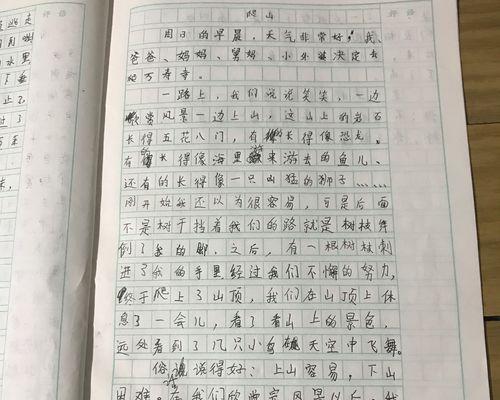 爬山
周日的早晨，天气非常好，我、
爸爸、妈妈、舅妈、小外婆决定去
爬万寿寺。
一路上，我们说说笑笑，一边
欣赏风景一边上山，这山上的岩石
长得五花八门，有的长得像恐龙，
有的长得像海里游来游去的鱼儿、
还有的长得像一只凶猛的狮子……
刚开始我还以为很容易，可是后面
不是树干挡着我们的路就是树枝绊
倒了我的脚，之后，有一根树枝刺
进了我的手里经过我们不懈的努力，
终于爬上了山顶，我们在山顶上休
息了一会儿，看了看山上的景色，
远处看到了几只小鸟在天空中飞舞。
俗话说得好：上山容易，下山
困难。在我们的观完风景以后，我